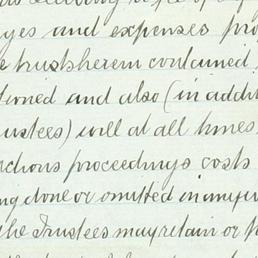 yes and expenses pro
e trusts herein contained
tioned and also (in addit
ustees) will at all times
ctions proceedings costs
ng done or omitted in anywi
the Trustees may retain or p